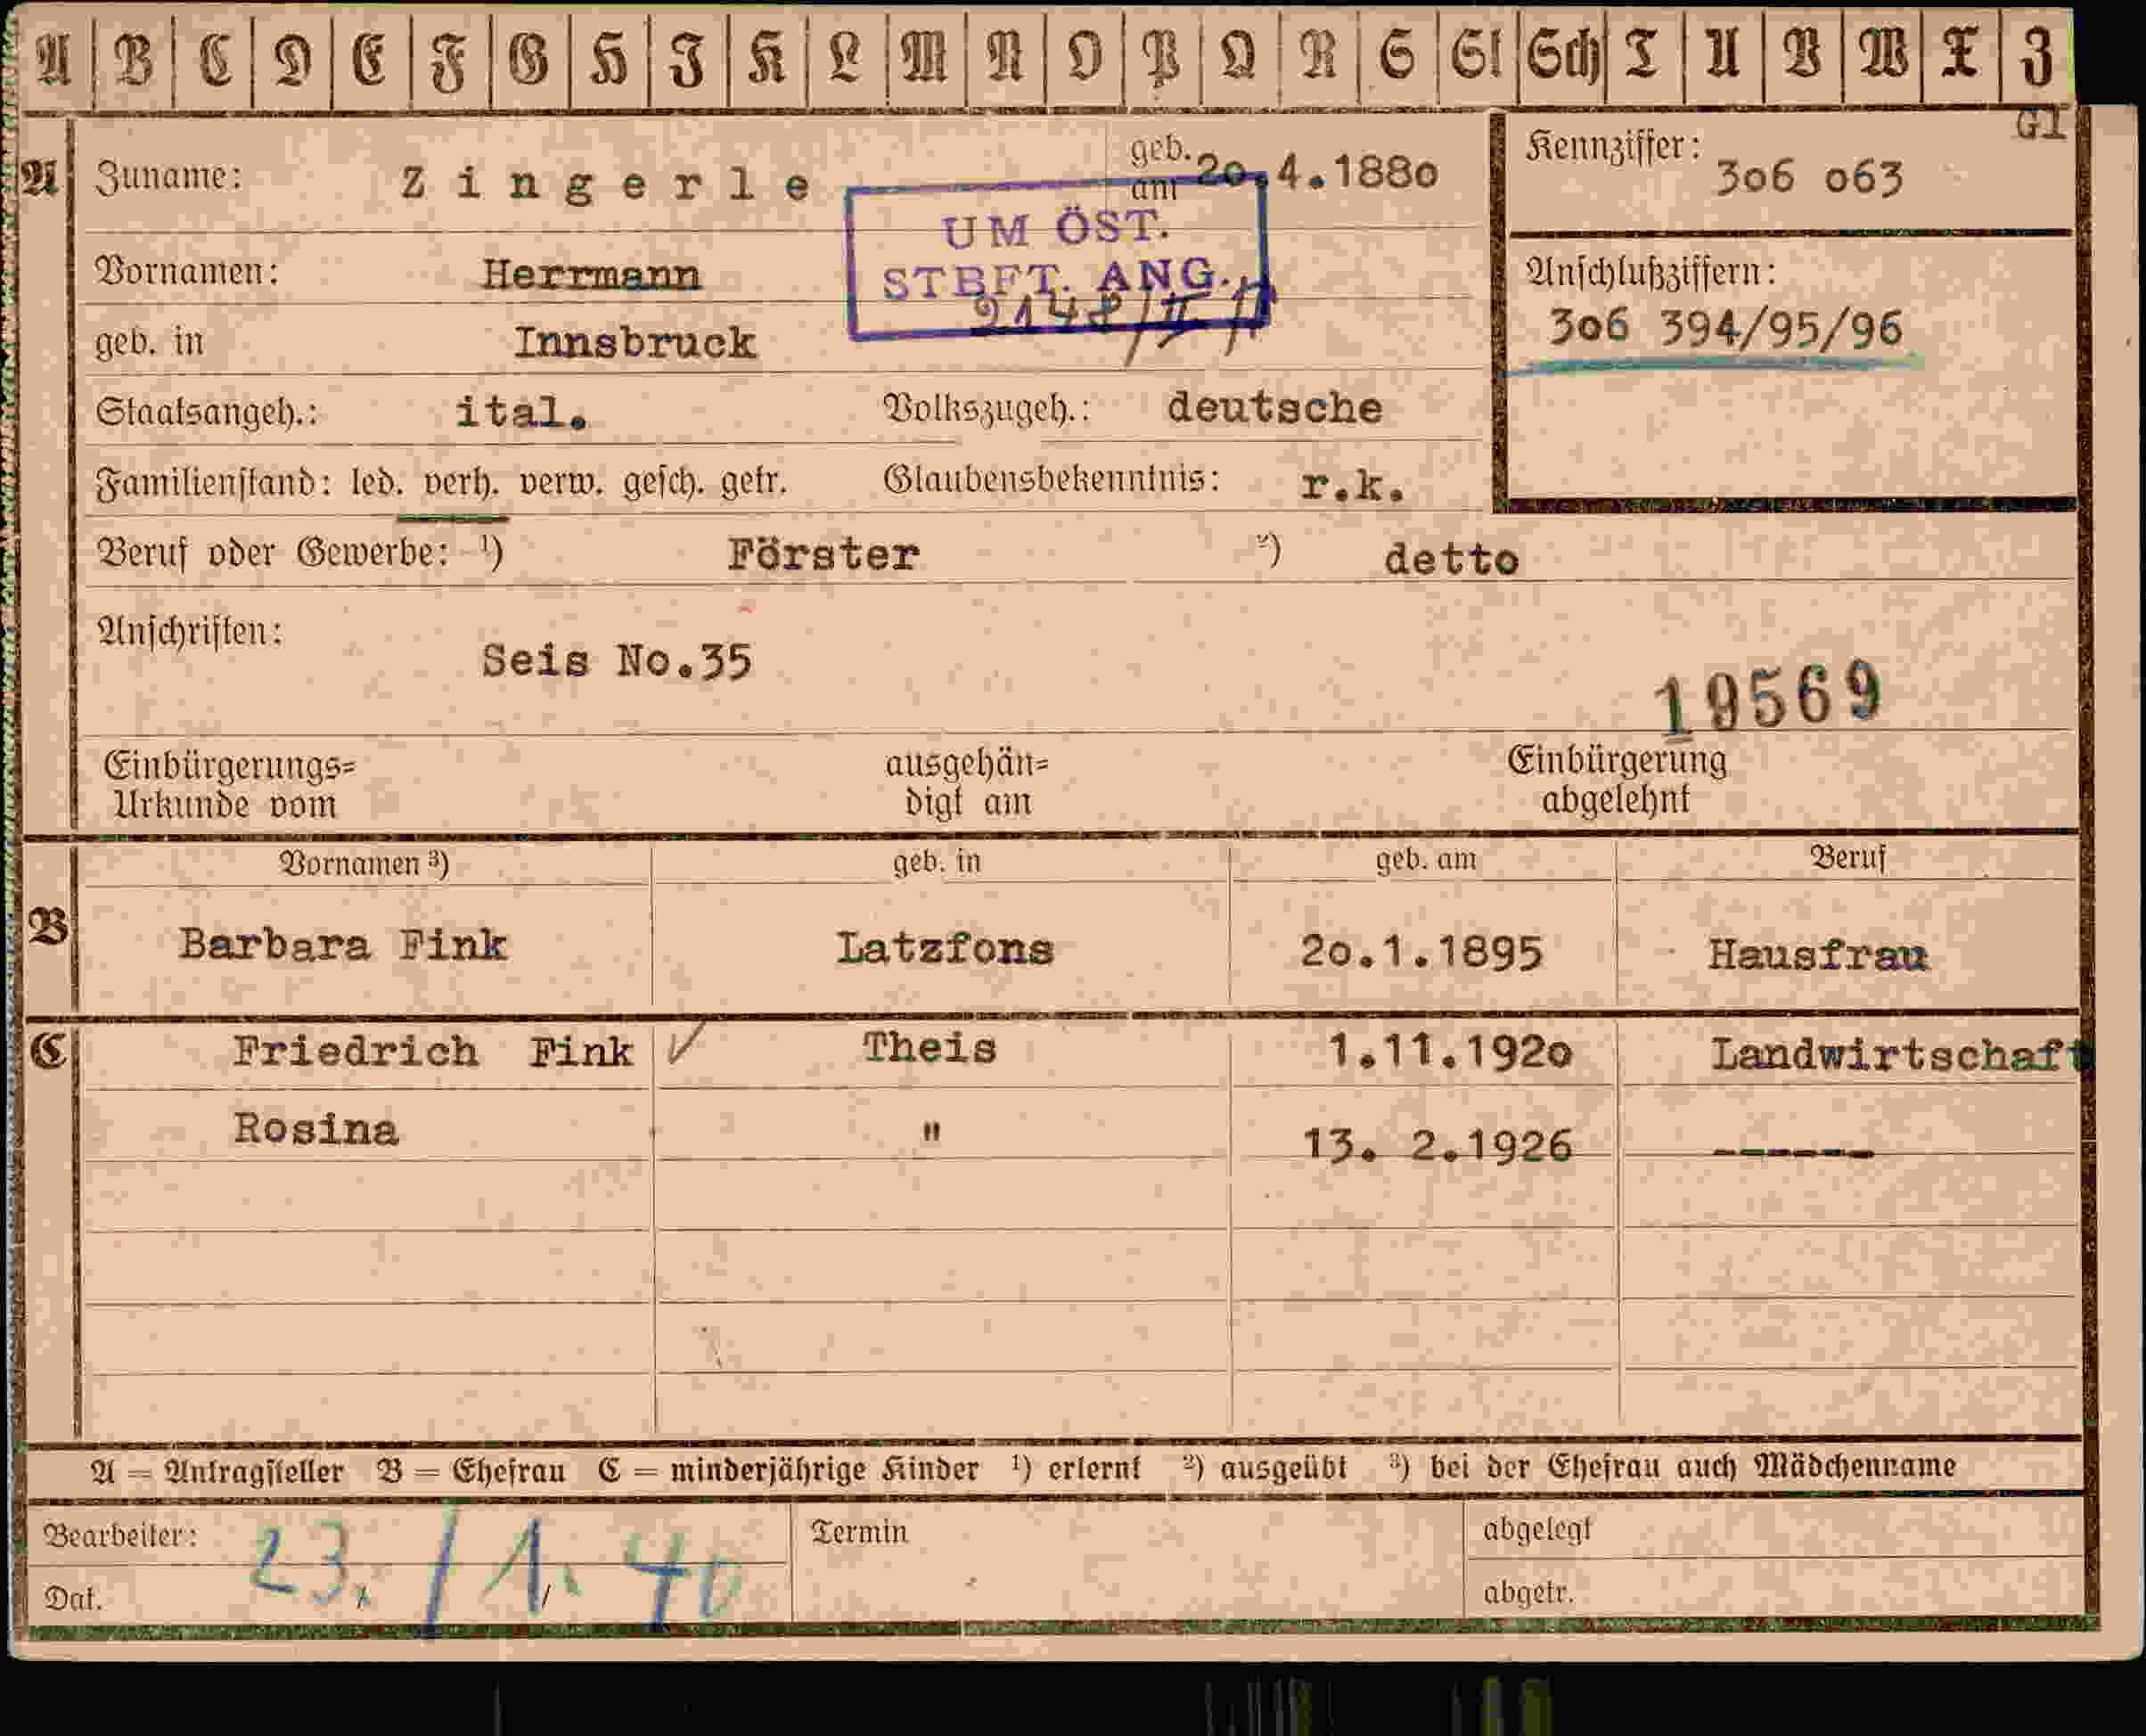 A B C D E F G H I K L M N O P Q R S St Sch T U V W X Z
G1
A Zuname: Zingerle geb. am 20.4.1880
Kennziffer: 306 063
UM ÖST.
STBFT. ANG.
Vornamen: Herrmann
Anschlußziffern:
306 394/95/96
geb. in Innsbruck
Staatsangeh.: ital. Volkszugeh.: deutsche
Familienstand: led. verh. verw. gesch. getr. Glaubensbekenntnis: r.k.
Beruf oder Gewerbe: ¹) Förster ²) detto
Anschriften: Seis No.35
19569
Einbürgerungs= ausgehän= Einbürgerung
Urkunde vom digt am abgelehnt
Vornamen ³) geb. in geb. am Beruf
B Barbara Fink Latzfons 20.1.1895 Hausfrau
C Friedrich Fink ✓ Theis 1.11.1920 Landwirtschaft
Rosina " 13. 2.1926 ------
A = Antragsteller B = Ehefrau C = minderjährige Kinder ¹) erlernt ²) ausgeübt ³) bei der Ehefrau auch Mädchenname
Bearbeiter: 23./1. 40 Termin abgelegt
Dat. abgetr.